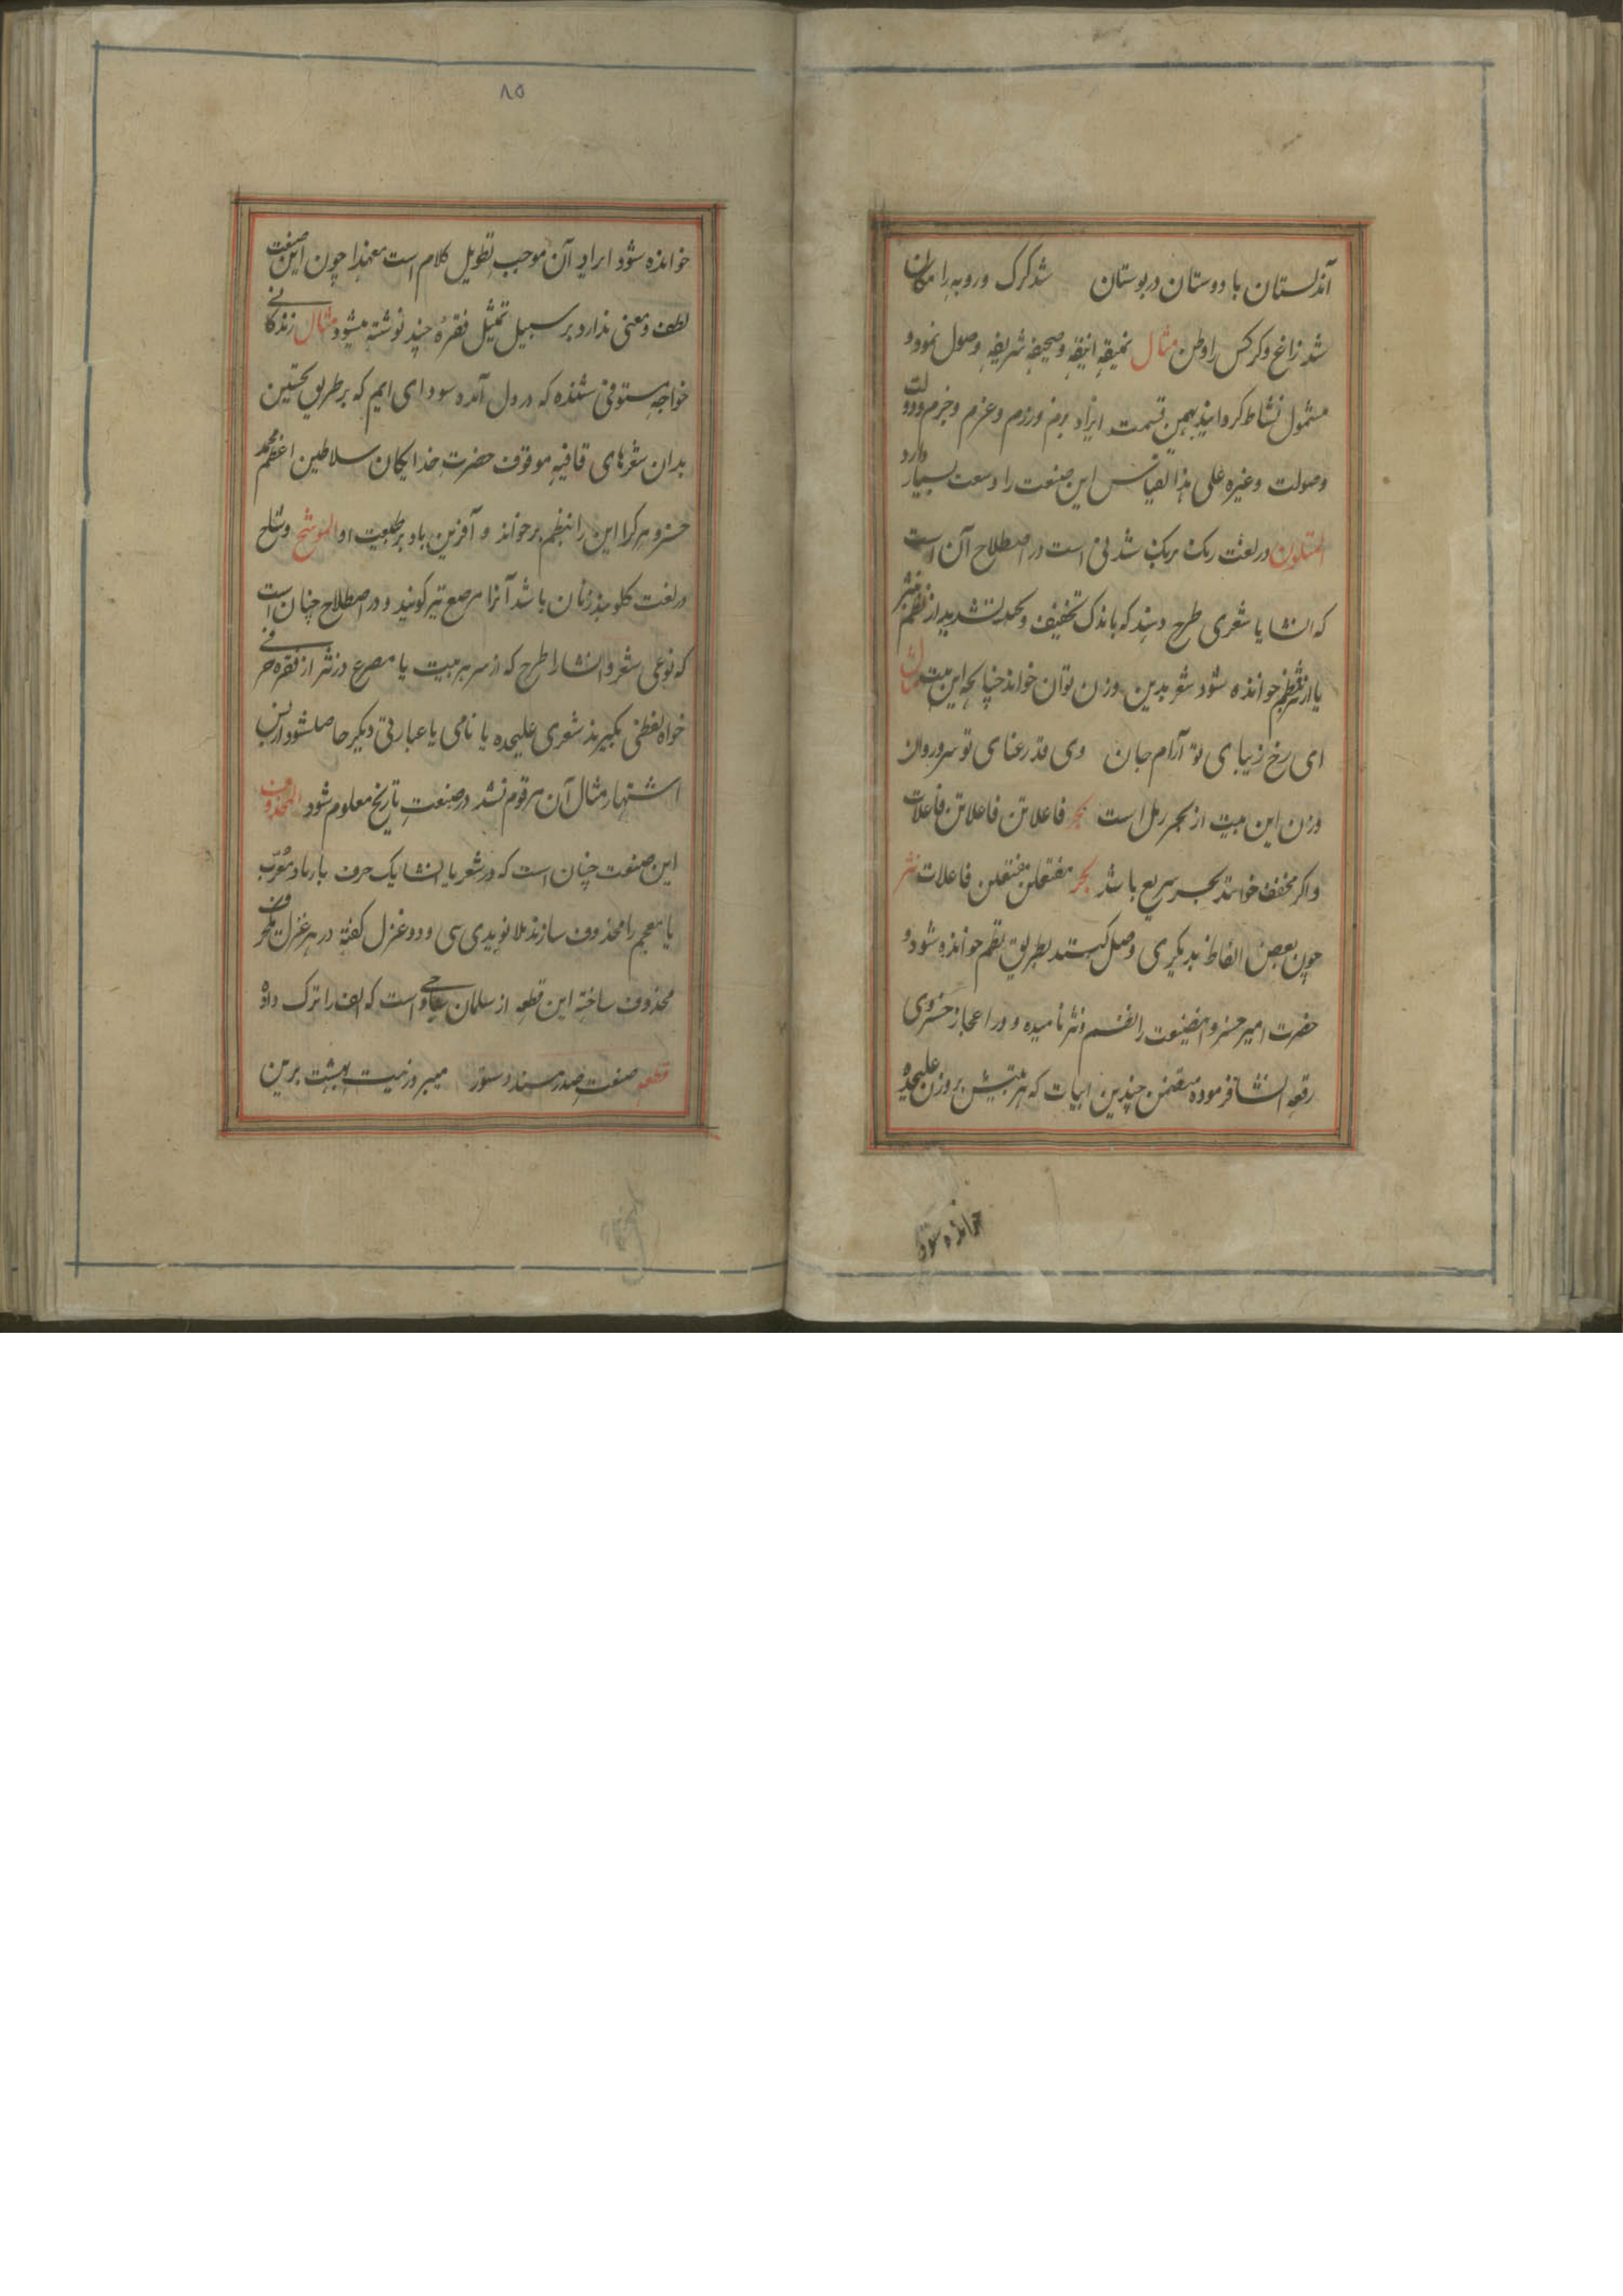 آن دلستان با دوستان در بوستان شد گرگ و روبه را مکان
شد زاغ و کرکس را وطن مثال نمیقه انیقه و صحیفه شریفه وصول نمود و
مشمول نشاط گردانید بهمین قسمت ایزاد بزم و رزم و عزم و جزم و دولت
و صولت و غیره علی هذا القیاس این صنعت را وسعت بسیار دارد
المتلون در لغت رنک برنک شدنی است در اصطلاح آن است
که انشا یا شعری طرح دهند که باندک تخفیف و تشدید از نظم نثر
یا از نثر نظم خوانده شود شعر بدین وزن توان خواند چنانچه این بیت مثال
ای رخ زیبای تو آرام جان وی قد رعنای تو سرو روان
وزن این بیت از بحر رمل است بحر فاعلاتن فاعلاتن فاعلات
و اکر مخفف خوانند بحر سریع باشد بحر مفتعلن مفتعلن فاعلات نثر
چون بعض الفاظ بدیکری وصل کنند بطریق نظم خوانده شود و
حضرت امیر خسرو اینصنعت را نظم و نثر نامیده و در اعجاز خسروی
رقعه انشا فرموده متضمن چندین ابیات که هر بیتیش بر وزن علیحده
خوانده شود
۸۵
خوانده شود ایراد آن موجب تطویل کلام است معهذا چون این صنعت
لطف و معنی ندارد بر سبیل تمثیل فقره چند نوشته میشود مثال زندکانی
خواجه مستوفی شنده که در دل آمده سودای ایم که بر طریق نختین
بدان شعرهای قافیه موقوف حضرت خدایکان سلاطین اعظم محمد
خسرو هر کرا این را بنظم برخواند و آفرین باد بر طبیعت او الموشح وشاح
در لغت کلوبند زنان باشد آنرا مرصع نیز کویند و در اصطلاح چنان است
که نوعی شعر و انشا را طرح که از سر هر بیت یا مصرع در نثر از فقره حرفی
خواه لفظی بگیرند شعری علیحده یا نامی یا عبارتی دیکر حاصل شود از بس
اشتهار مثال آن مرقوم نشد در صنعت تاریخ معلوم شود المحذوف
این صنعت چنان است که در شعر یا انشا یک حرف یا زیاد معرب
یا معجم را محذوف سازند ملا نویدی سی و دو غزل کفته در هر غزل یکحرف
محذوف ساخته این قطعه از سلمان ساوجی است که الف را ترک داده
قطعه صنعت صدر مسند دستور میبرد زنیت بهشت برین